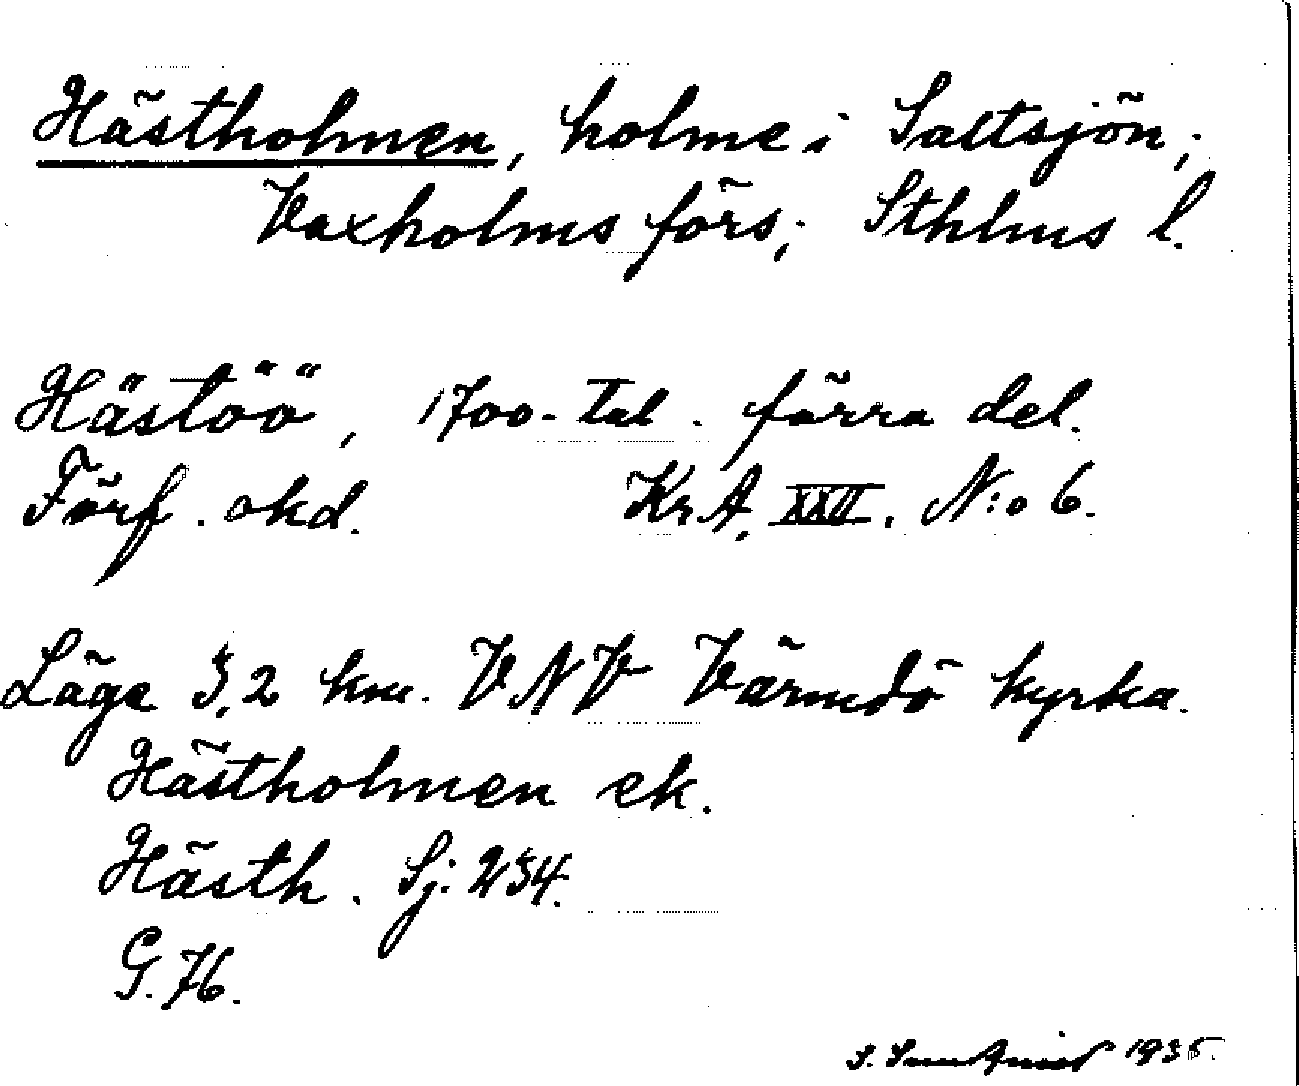 Hästholmen, holme i Saltsjön;
Vaxholms förs; Sthlms l.
Hästöö, 1700-tal. förra del.
Förf. okd. KrA, XXII. N:o 6.
Läge 3,2 km. VNV Värmdö kyrka.
Hästholmen ek.
Hästh. Sj. 234.
G. 76.
S. 1935.